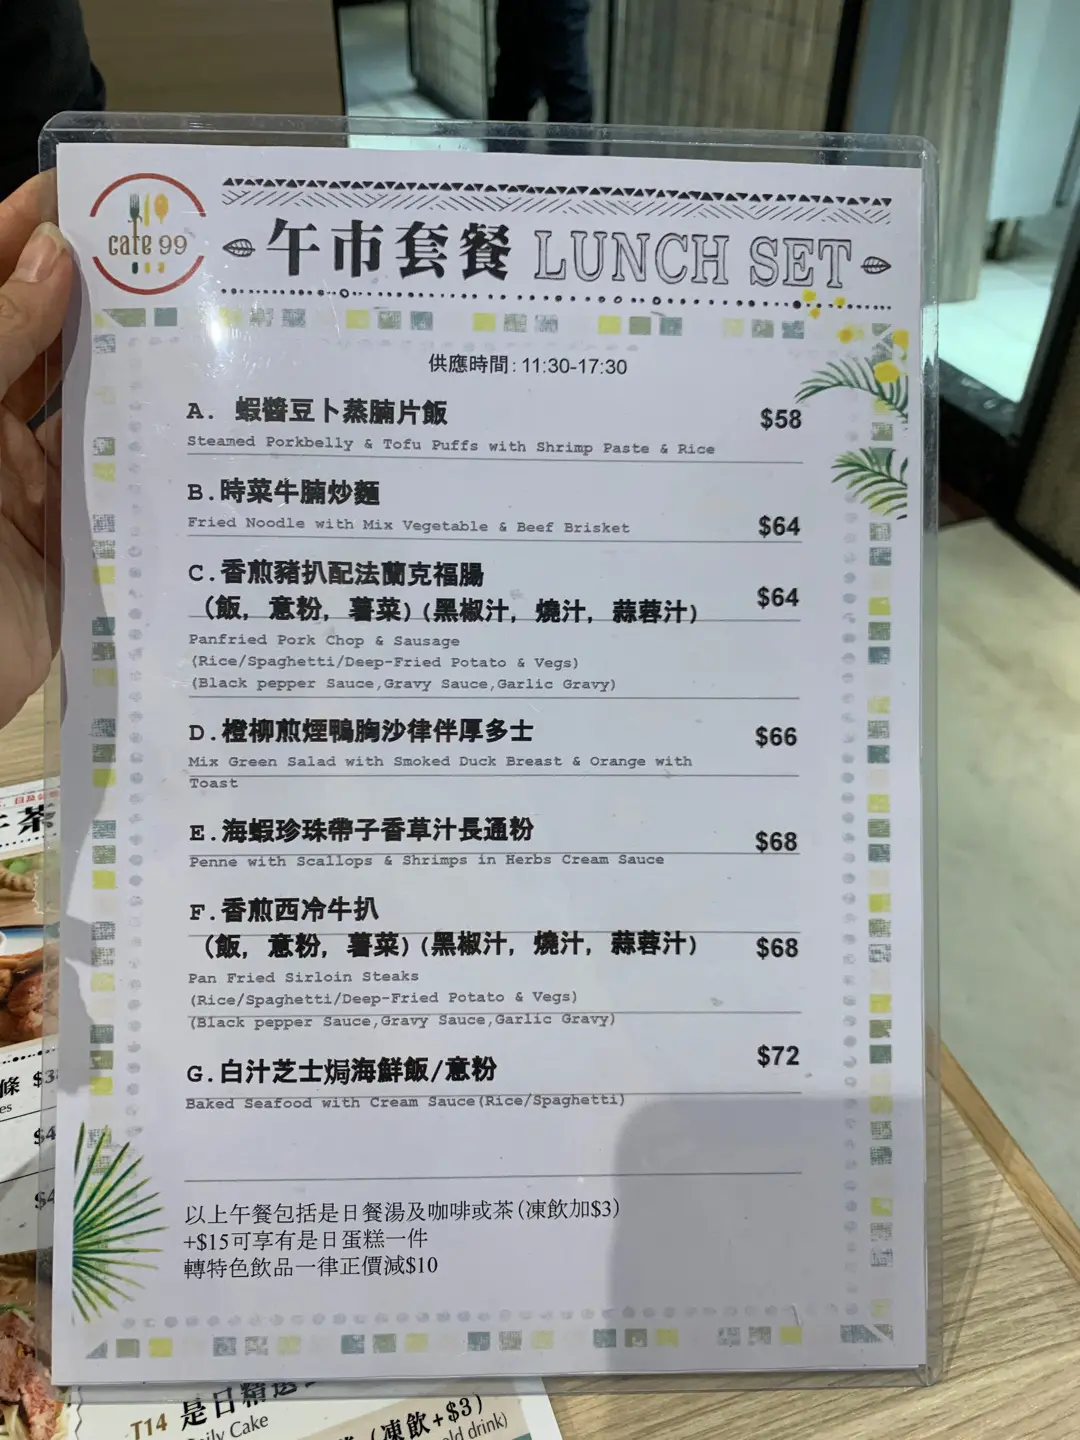 cafe 99
午市套餐 LUNCH SET
供應時間: 11:30-17:30
A. 蝦醬豆卜蒸腩片飯 $58
Steamed Porkbelly & Tofu Puffs with Shrimp Paste & Rice
B.時菜牛腩炒麵
Fried Noodle with Mix Vegetable & Beef Brisket $64
C.香煎豬扒配法蘭克福腸
(飯, 意粉, 薯菜)(黑椒汁, 燒汁, 蒜蓉汁) $64
Panfried Pork Chop & Sausage
(Rice/Spaghetti/Deep-Fried Potato & Vegs)
(Black pepper Sauce,Gravy Sauce,Garlic Gravy)
D.橙柳煎煙鴨胸沙律伴厚多士 $66
Mix Green Salad with Smoked Duck Breast & Orange with
Toast
E.海蝦珍珠帶子香草汁長通粉 $68
Penne with Scallops & Shrimps in Herbs Cream Sauce
F.香煎西冷牛扒
(飯, 意粉, 薯菜)(黑椒汁, 燒汁, 蒜蓉汁) $68
Pan Fried Sirloin Steaks
(Rice/Spaghetti/Deep-Fried Potato & Vegs)
(Black pepper Sauce,Gravy Sauce,Garlic Gravy)
G.白汁芝士焗海鮮飯/意粉 $72
Baked Seafood with Cream Sauce(Rice/Spaghetti)
以上午餐包括是日餐湯及咖啡或茶(凍飲加$3)
+$15可享有是日蛋糕一件
轉特色飲品一律正價減$10
茶
條
T14 是日精選
Cake
(凍飲+$3)
drink)